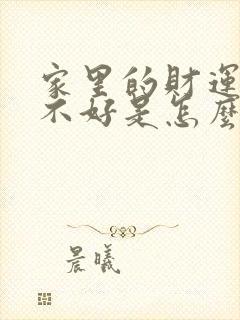 家里的財運
不好是怎麼
晨曦